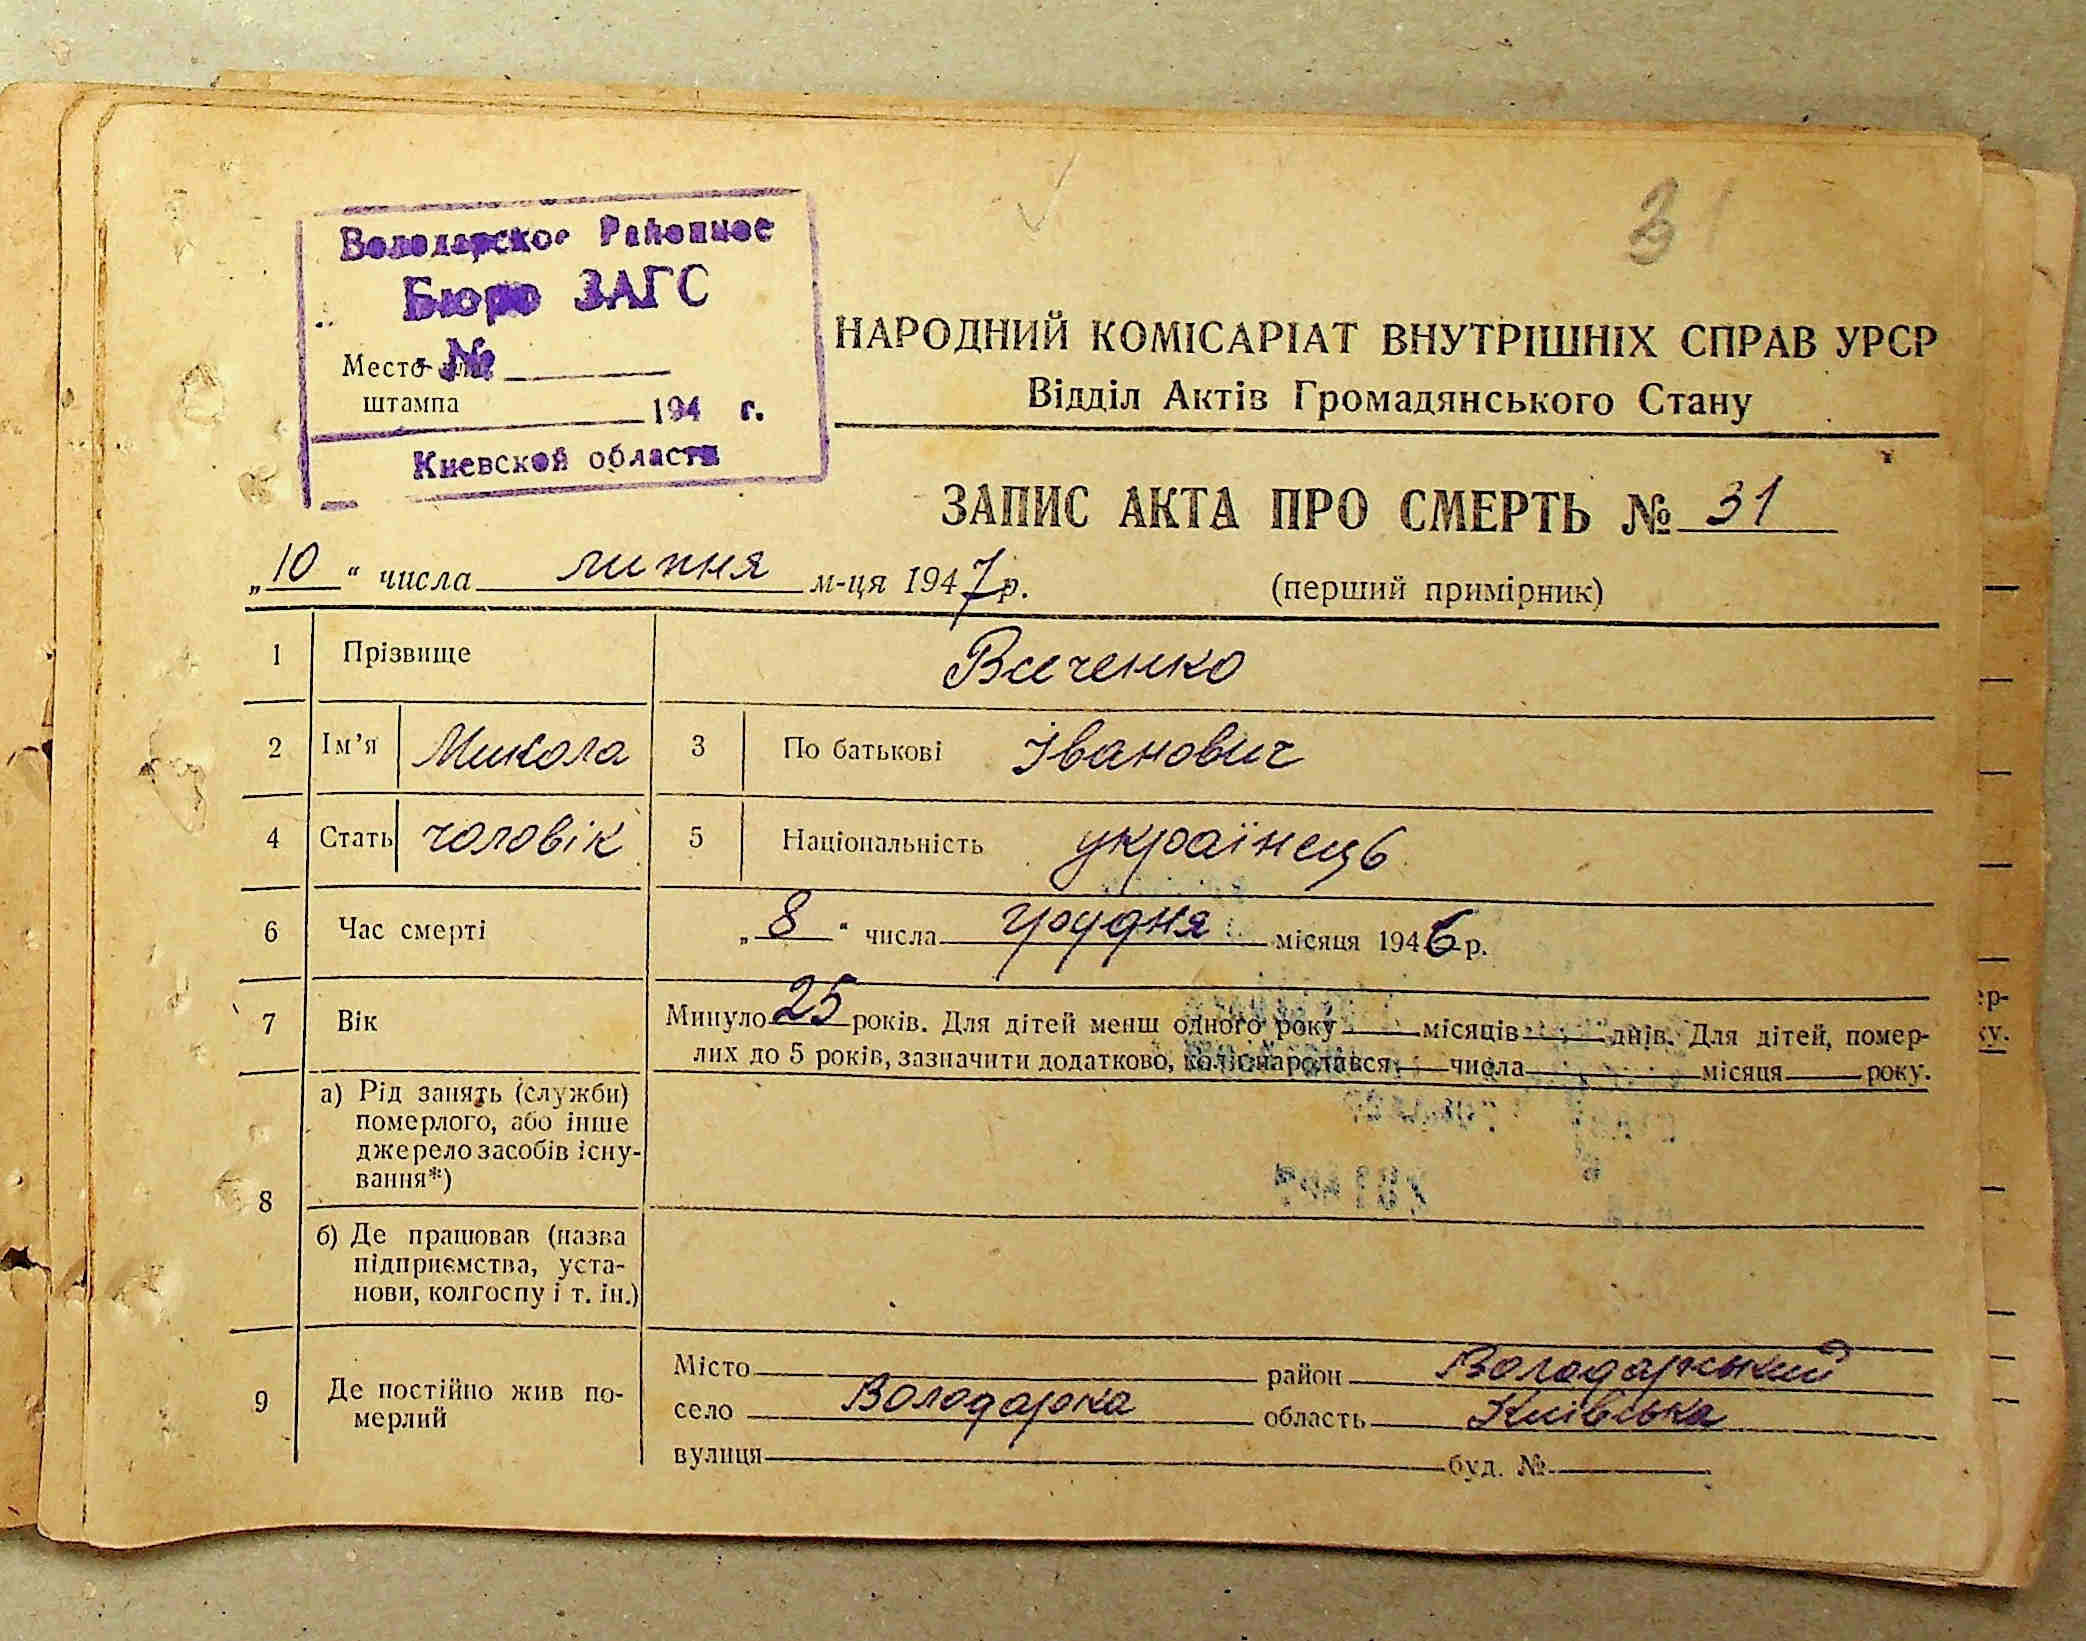 31
Володарское Районное
Бюро ЗАГС
Место №
штампа 194 г.
Киевской области
НАРОДНИЙ КОМІСАРІАТ ВНУТРІШНІХ СПРАВ УРСР
Відділ Актів Громадянського Стану
ЗАПИС АКТА ПРО СМЕРТЬ № 31
„10“ числа липня м-ця 1947 р. (перший примірник)
1 Прізвище Виченко
2 Ім’я Микола 3 По батькові Іванович
4 Стать чоловік 5 Національність українець
6 Час смерті „8“ числа грудня місяця 1946 р.
7 Вік Минуло 25 років. Для дітей менш одного року місяців днів. Для дітей, помер-
лих до 5 років, зазначити додатково, коли народився числа місяця року.
8 а) Рід занять (служби)
померлого, або інше
джерело засобів існу-
вання*)
б) Де працював (назва
підприємства, уста-
нови, колгоспу і т. ін.)
9 Де постійно жив по-
мерлий
Місто район Володарський
село Володарка область Київська
вулиця буд. №